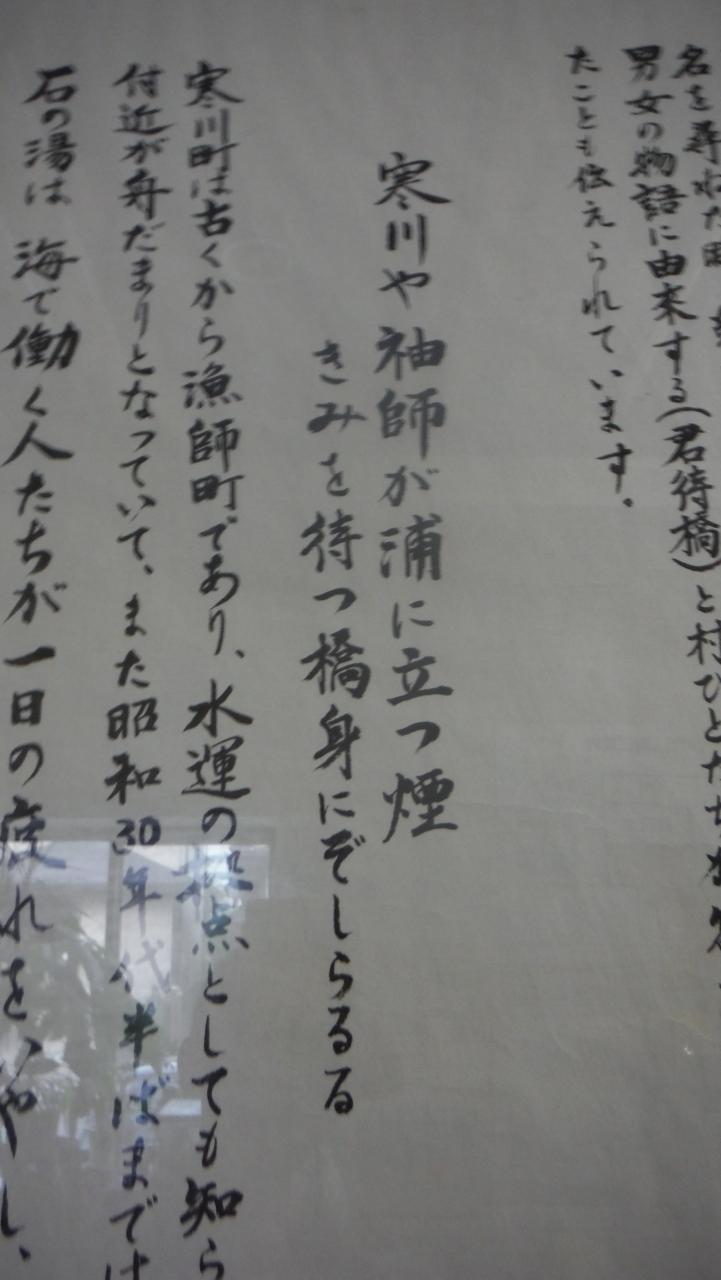 名を尋ねた時
男女の物語に由来する(君待橋)と村びとたち
たことも伝えられています。
寒川や袖師が浦に立つ煙
きみを待つ橋身にぞしらるる
寒川町は古くから漁師町であり、水運の拠点としても知ら
付近が舟だまりとなっていて、また昭和30年代半ばまでは
石の湯は 海で働く人たちが一日の疲れをいやし、